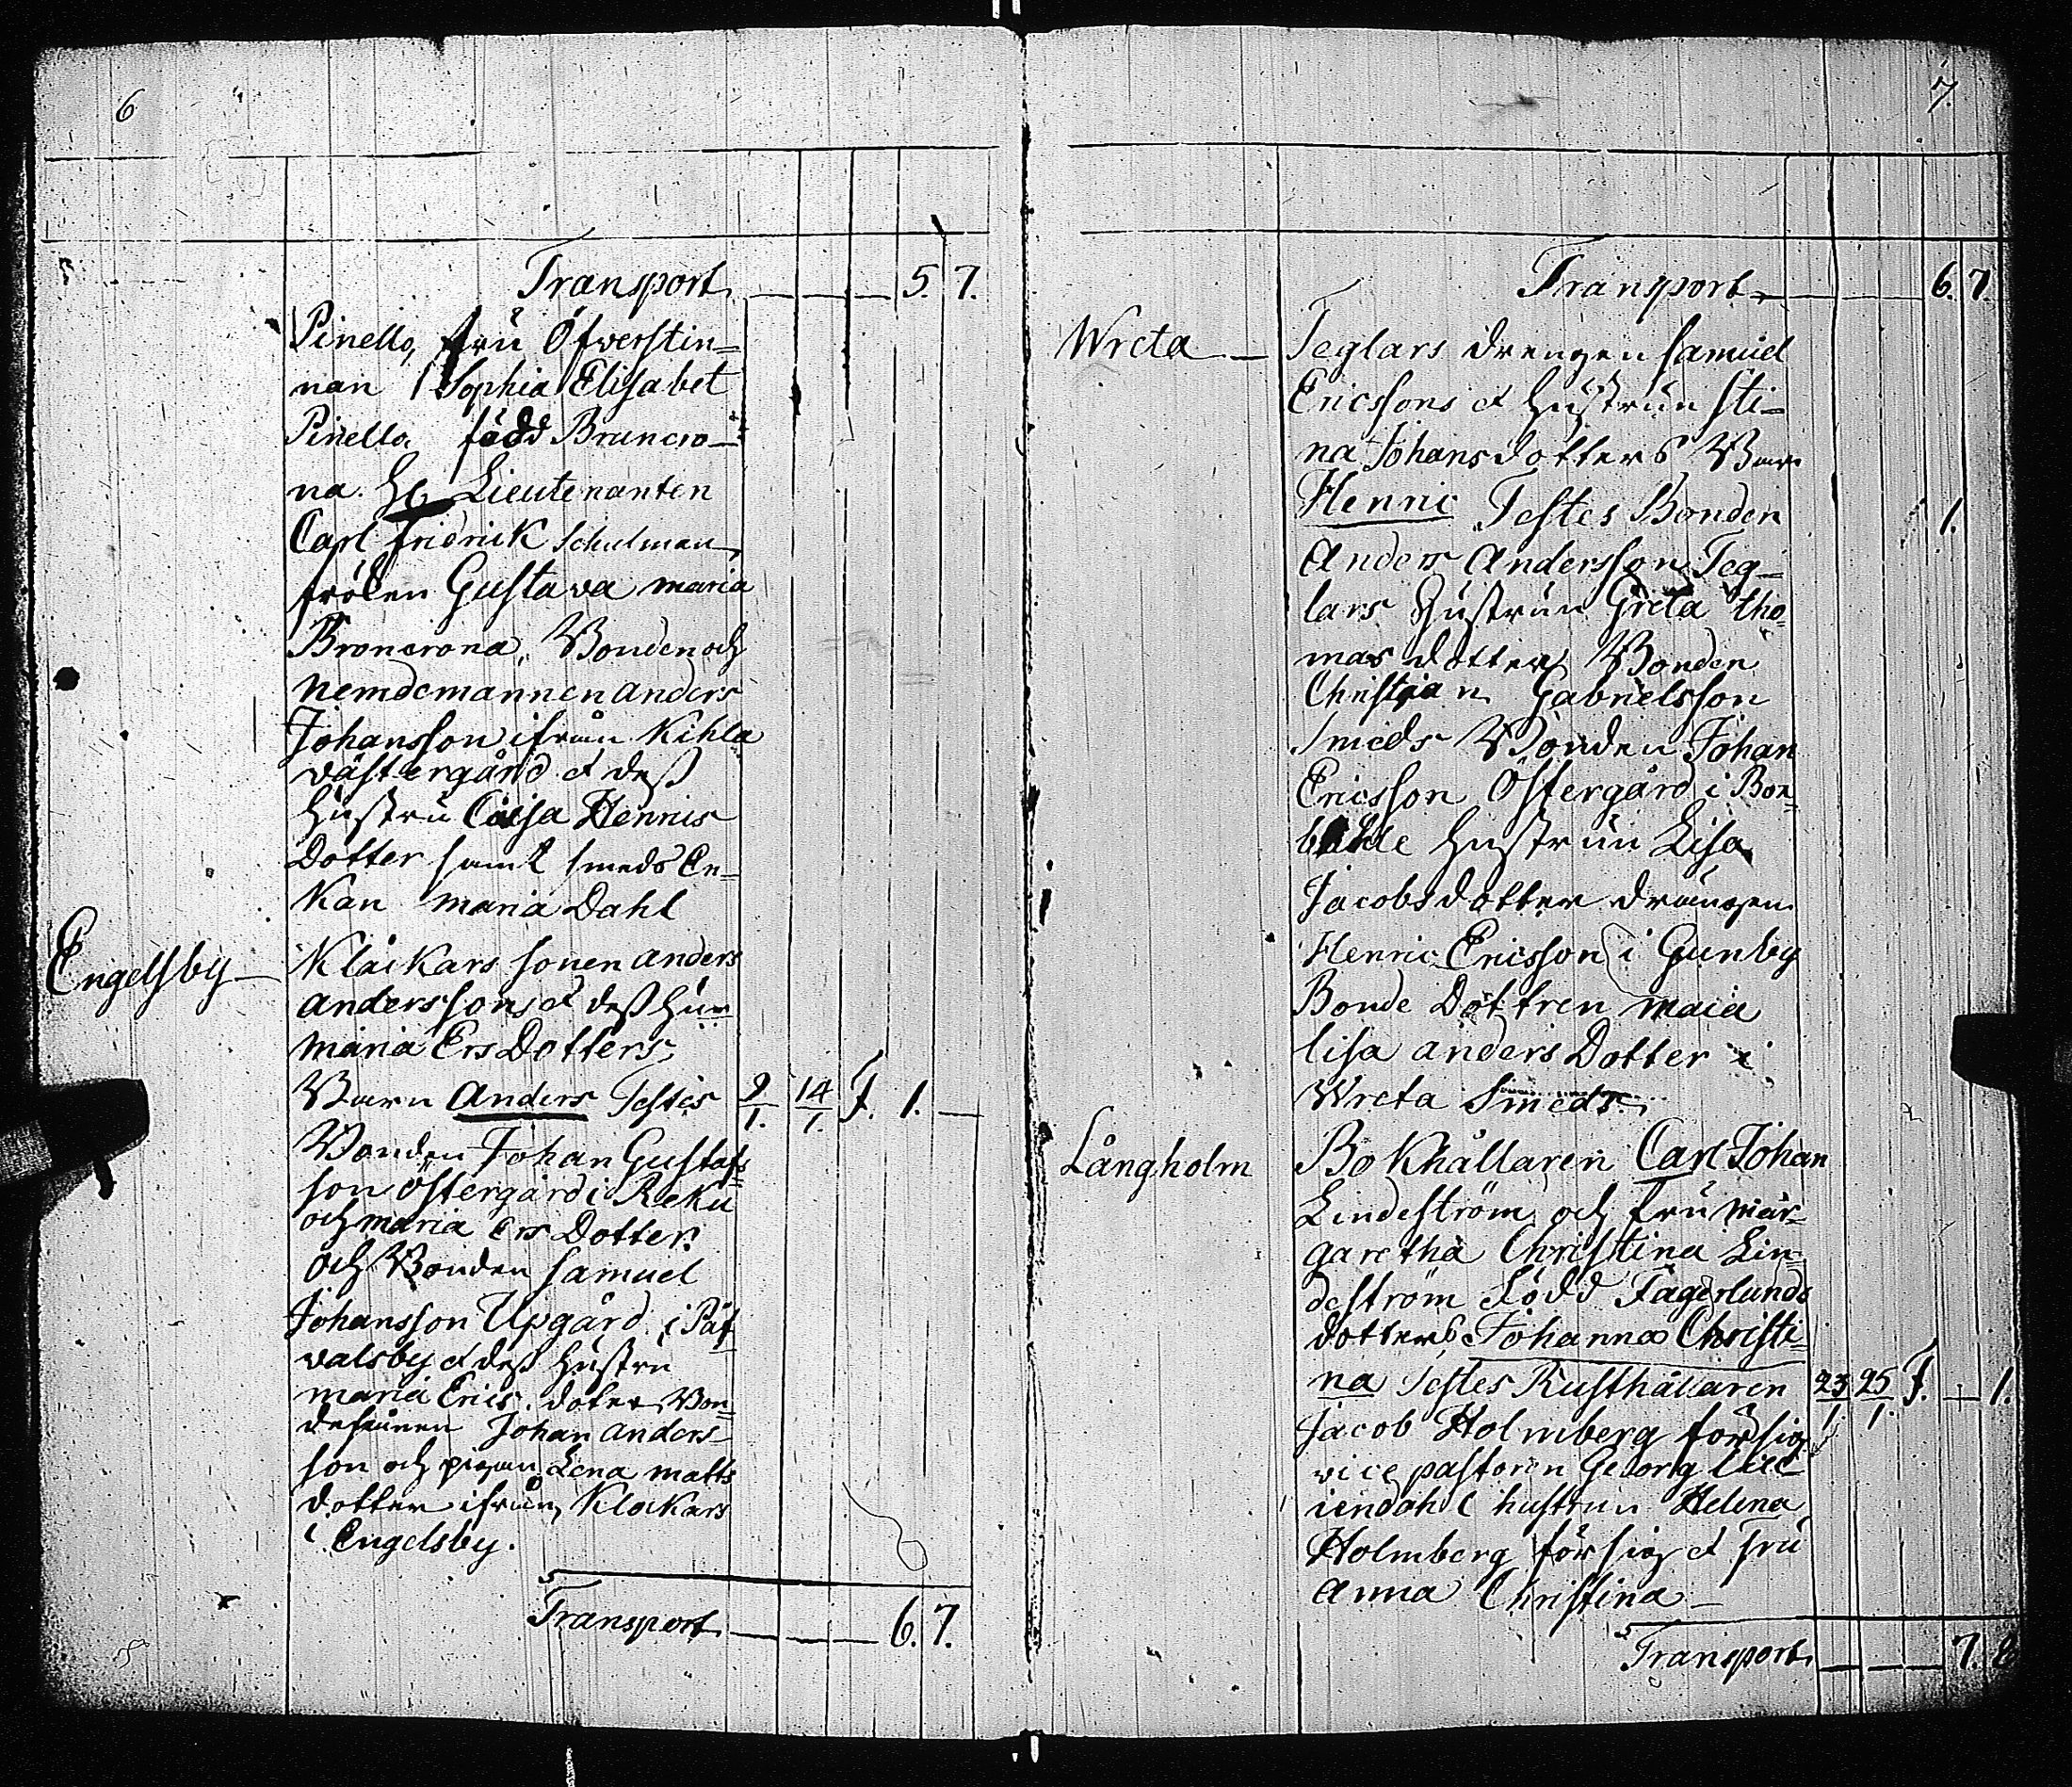 6
Transport 5. 7.
Pinello, fru Öfverstin=
nan Sophia Elisabet
Pinello född Bruncro=
na. Hr Lieutenanten
Carl Fridrik Schulman
fröken Gustava maria
Broncrona, Bonden och
nemdemannen anders
Johansson ifrån Kihla
västergård et dess
Hustru Caisa Henrics
Dotter samt smeds En=
kan maria Dahl
Engelsby — Klåckars sonen anders
anderssons et dess Hu
maria Ers Dotters
Barn Anders Testes 9/1. 14/1. F. 1. —
Bonden Johan Gustafs
son östergård i Reku
och maria Ers Dotter
och Bonden Samuel
Johansson Upgård i Påf
valsby et dess Hustru
maria Erics doter Bon=
desonen Johan anders
son och pigan Lena matts
dotter ifrån Klockars
i Engelsby.
Transport 6. 7.
7.
Transport 6. 7.
Wreta — Teglars drengen Samuel
Ericssons et Hustrun Sti=
na Johansdotters Barn
Henric Testes Bonden 1.
Anders Andersson Teg=
lars Hustrun Greta tho=
mas dotter Bonden
Christian Gabrielsson
Smeds Bonden Johan
Ericsson Östergård i Bon=
Hustrun Lisa
Jacobsdotter drängen
Henric Ericsson i Gunby
Bonde Dottren maia
lisa anders Dotter i
Wreta Smeds
Långholm Bokhållaren Carl Johan
Lindeström och fru mar=
garetha Christina Lin=
deström Född Fagerlunds
dotter Johanna Christi=
na Testes Rusthållaren 23/1. 25/1. F. — 1.
Jacob Holmberg för sig
vice pastoren Georg
hustrun Helena
Holmberg för sig et fru
Anna Christina —
Transport 7. 8